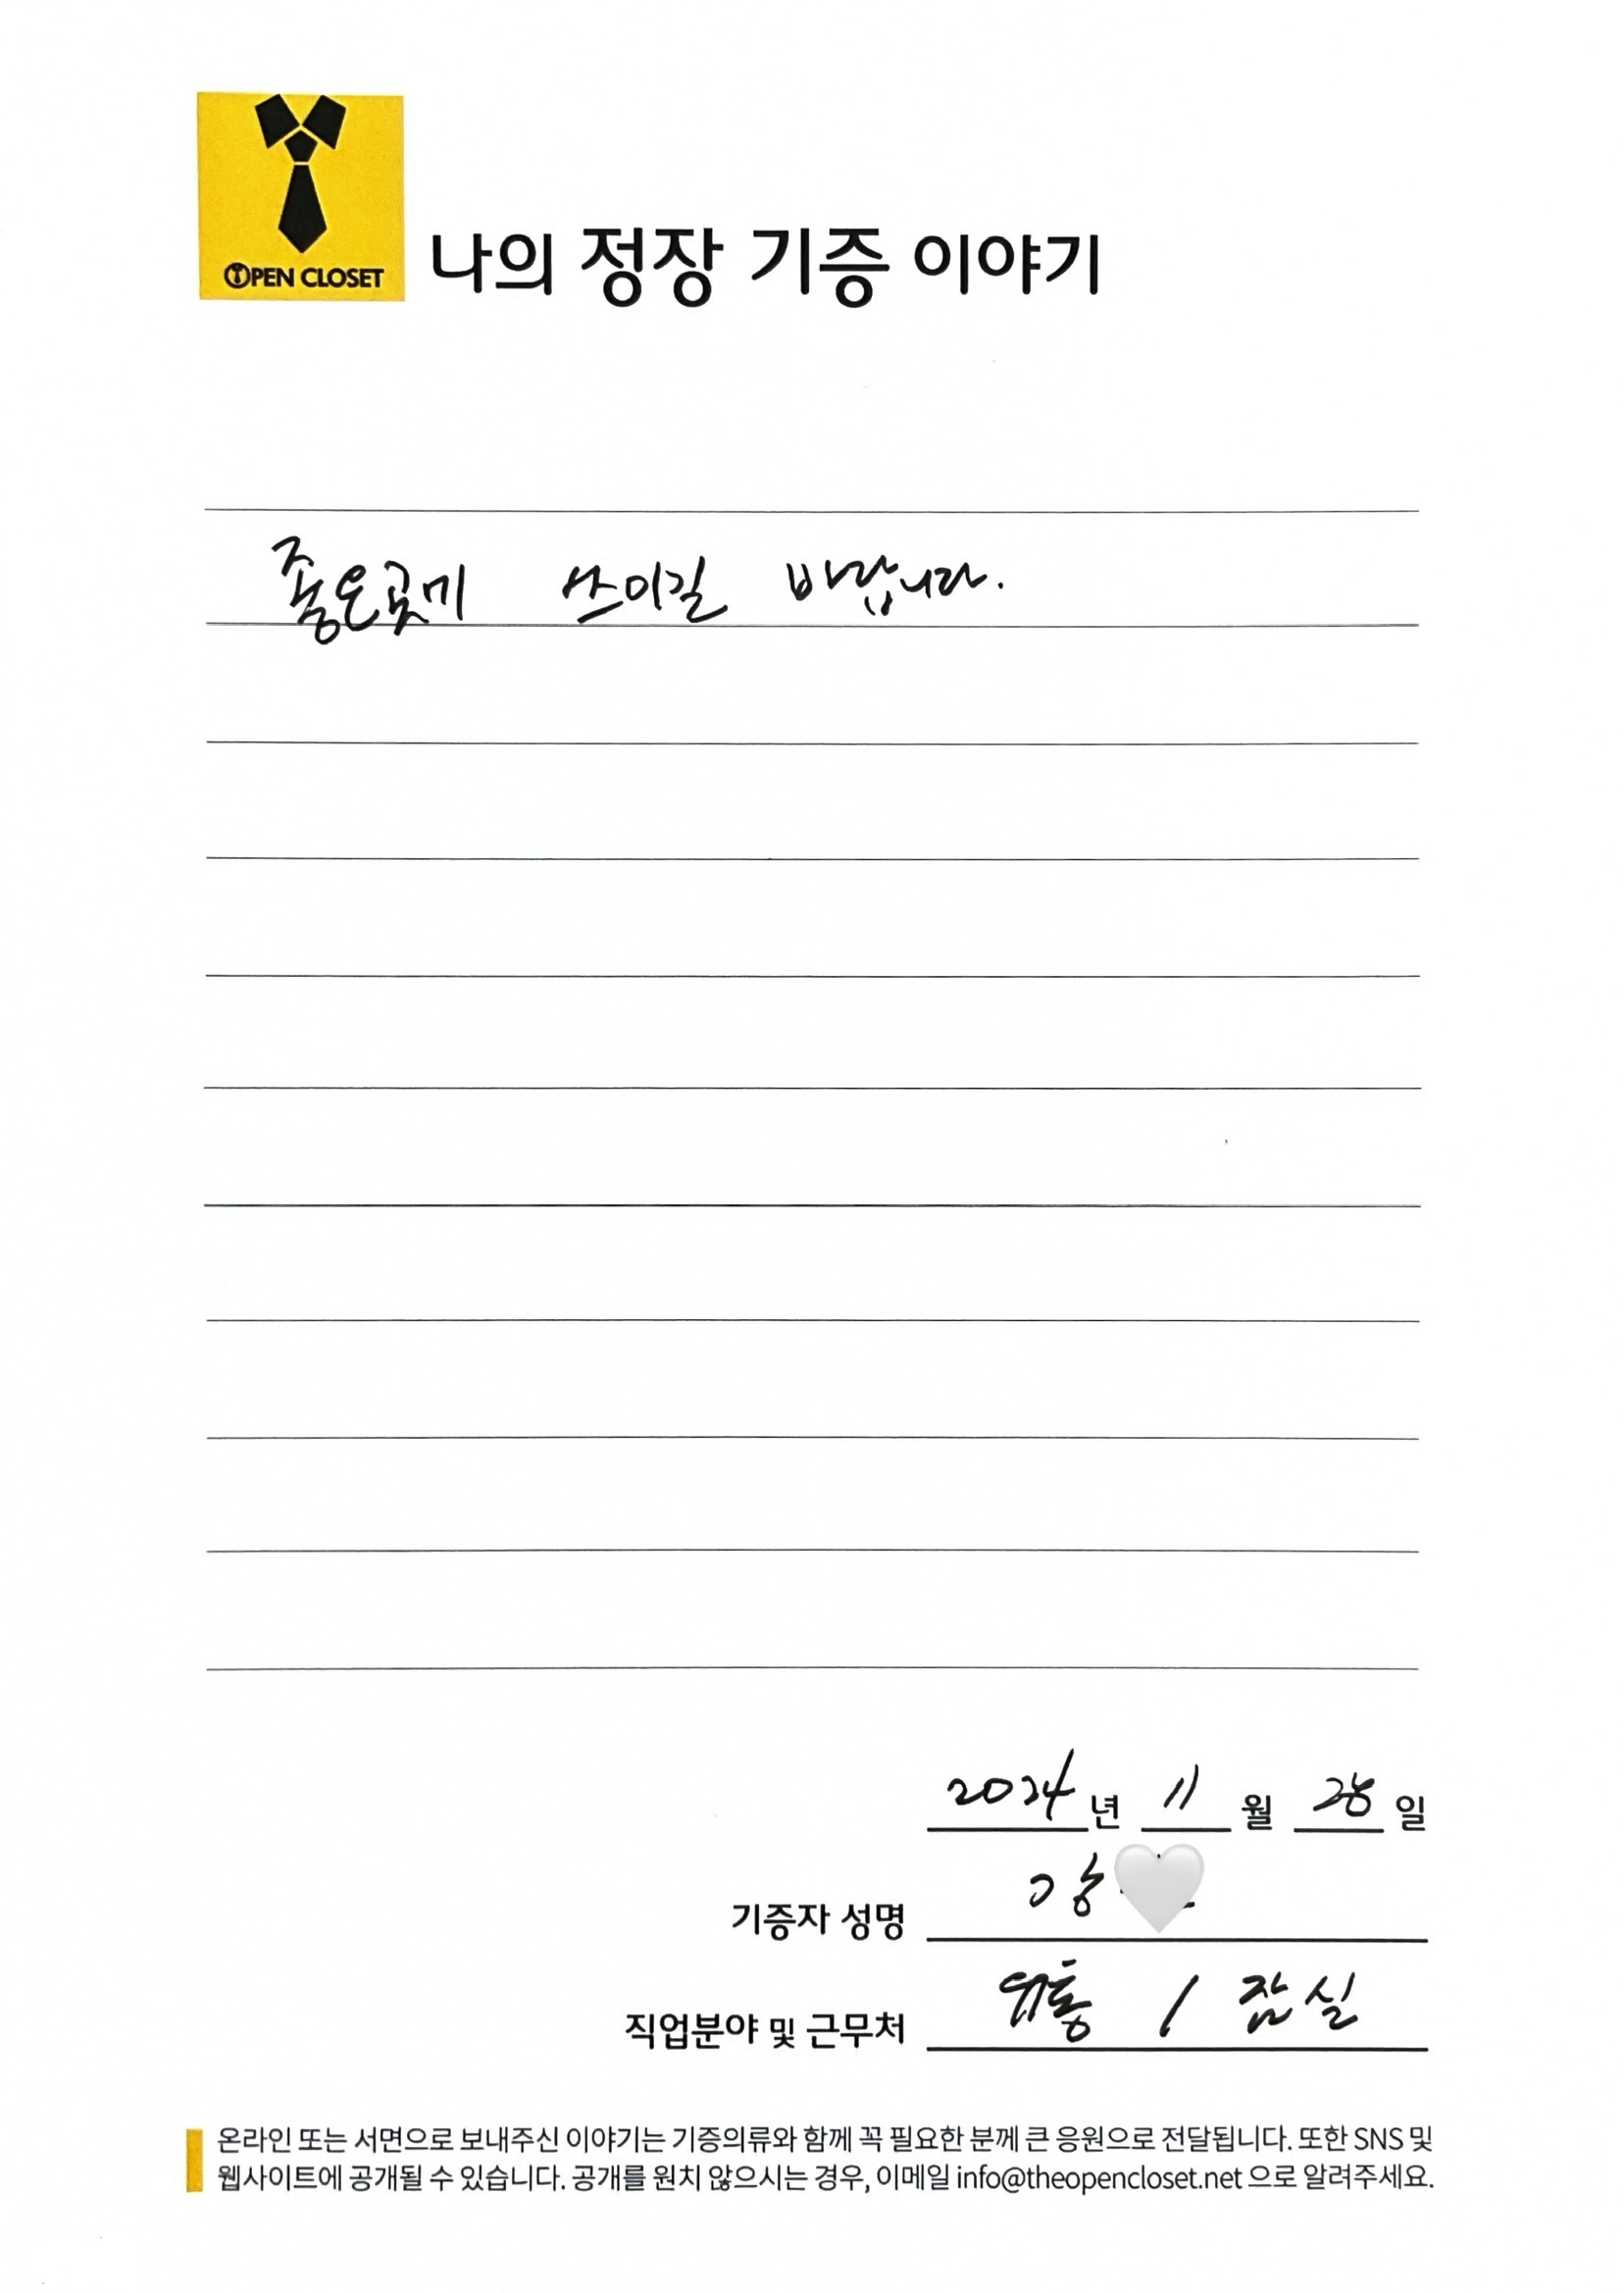 OPEN CLOSET
나의 정장 기증 이야기
좋은곳에 쓰이길 바랍니다.
2024년 11월 28일
기증자 성명 강
직업분야 및 근무처 유통 / 잠실
온라인 또는 서면으로 보내주신 이야기는 기증의류와 함께 꼭 필요한 분께 큰 응원으로 전달됩니다. 또한 SNS 및
웹사이트에 공개될 수 있습니다. 공개를 원치 않으시는 경우, 이메일 info@theopencloset.net 으로 알려주세요.